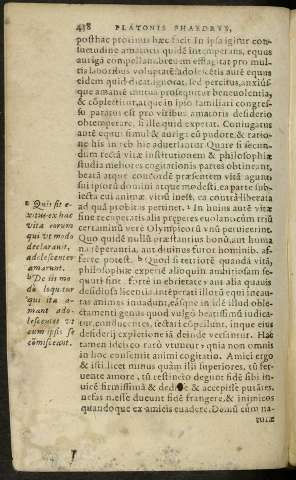 438 PLATONIS PHAEDRVS,
posthac protinus hæc facit. In ipsa igitur con-
suetudine amatoris quidē intemperans, equus
aurigā compellans, breuem efflagitat pro mul-
tis laboribus voluptatē: adolescētis autē equus
eidem quid dicat, ignorat, sed percitus, anxiús-
que amatē mutua prosequitur beneuolentia,
& cōplectitur, atque in ipso familiari congres-
su paratus est pro viribus amatoris desiderio
obtemperare, si ille quid expetat. Coniugatus
autē equus simul & auriga cū pudore, & ratio-
ne his in rebus hic aduersantur. Quare si secun-
dum rectā vitæ institutionem & philosophiæ
studia meliores cogitationis partes obtinent,
beatā atque concordē præsentem vitā agunt
sui ipsorū domini atque modesti, ea parte sub-
iecta cui animæ vitiū inest, ea contrà liberata
ad quā probitas pertinet. In huius autē vitæ
fine recuperatis alis propere euolant, cùm triū
certaminū verè Olympicorū vnū peruicerint.
Quo quidē nullū præstantius bonū, aut huma-
na tēperantia, aut diuinus furor hominib. af-
ferre potest. b Quod si tetriorē quandā vitā,
philosophiæ expertē alioquin ambitiosam se-
quuti sint, fortè in ebrietate, vel alia quauis
desidiosa licentia intēperati illorū equi incau-
tas animas inuadunt, easque in idē illud oble-
ctamenti genus quod vulgò beatissimū iudica-
tur, conducentes, iectari cōpellunt, inque eius
desiderij expletione iā deinde versantur. Hac
tamen ideo eo raro vtuntur, quia non omnis
in hoc consentit animi cogitatio. Amici ergo
& isti, licet minus quàm illi superiores, tū fer-
uente amore, tū restincto degunt fidē sibi in-
uicē firmissimā & dedisse & accepisse putātes,
nefas nesse ducunt fidē frangere, & inimicos
quandoque ex amicis euadere. Domū cùm na-
turæ
a Quis sit e-
xitus ex hac
vita eorum
qui vt modo
declarant,
adolescentem
amarunt.
b De iis mo-
dò loquitur
qui ita a-
mant ado-
lescentes vt
cum ipsis se
cōmisceant.